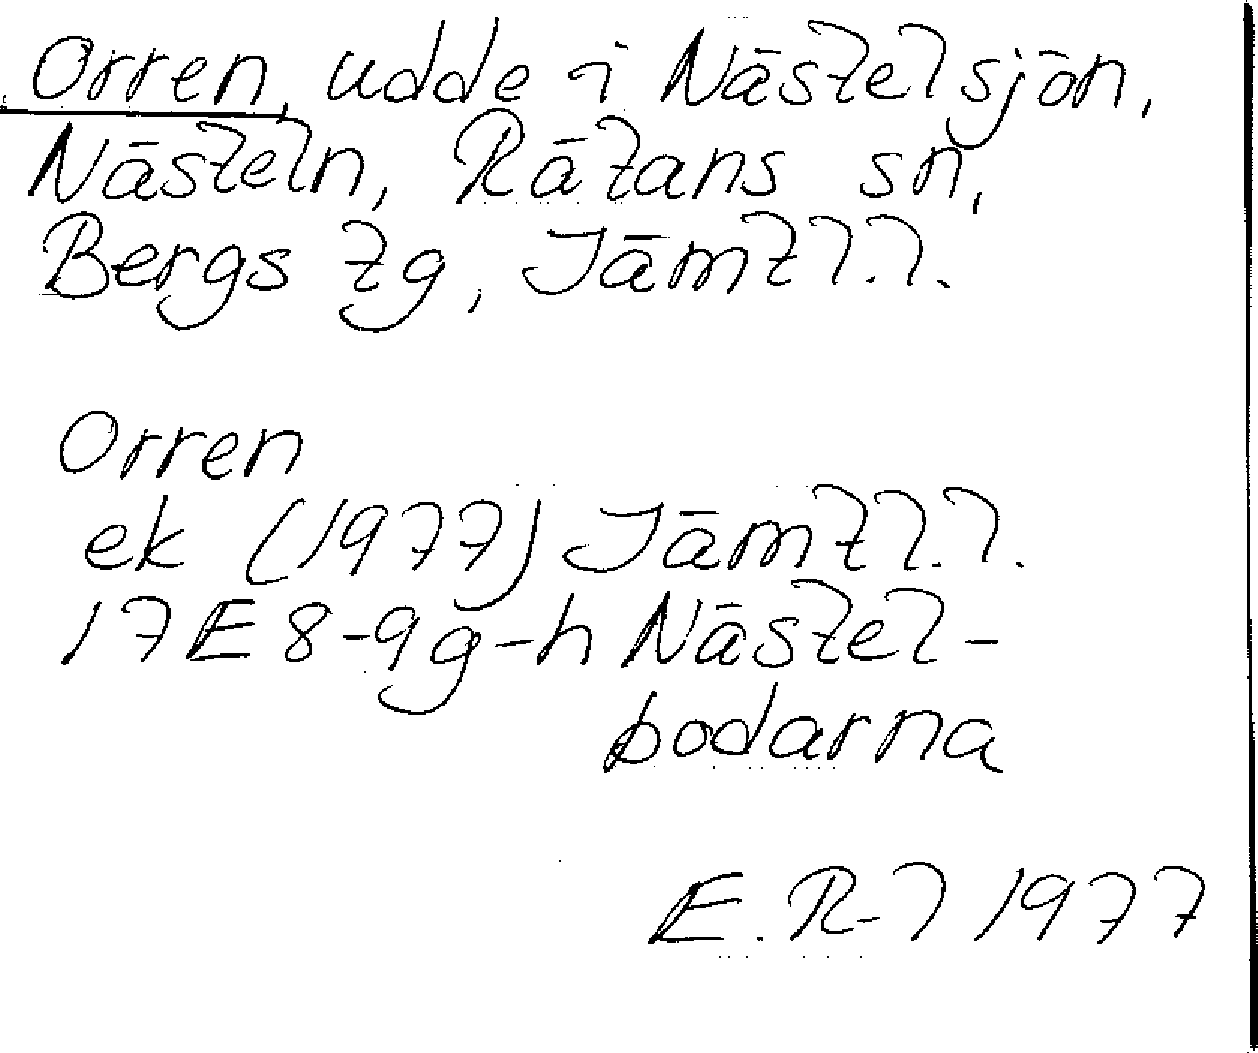 Orren, udde i Nästelsjön,
Nästeln, Rätans sn,
Bergs tg, Jämtl.l.
Orren
ek (1977) Jämtl.l.
17E 8-9g-h Nästel-
bodarna
E.R-l 1977